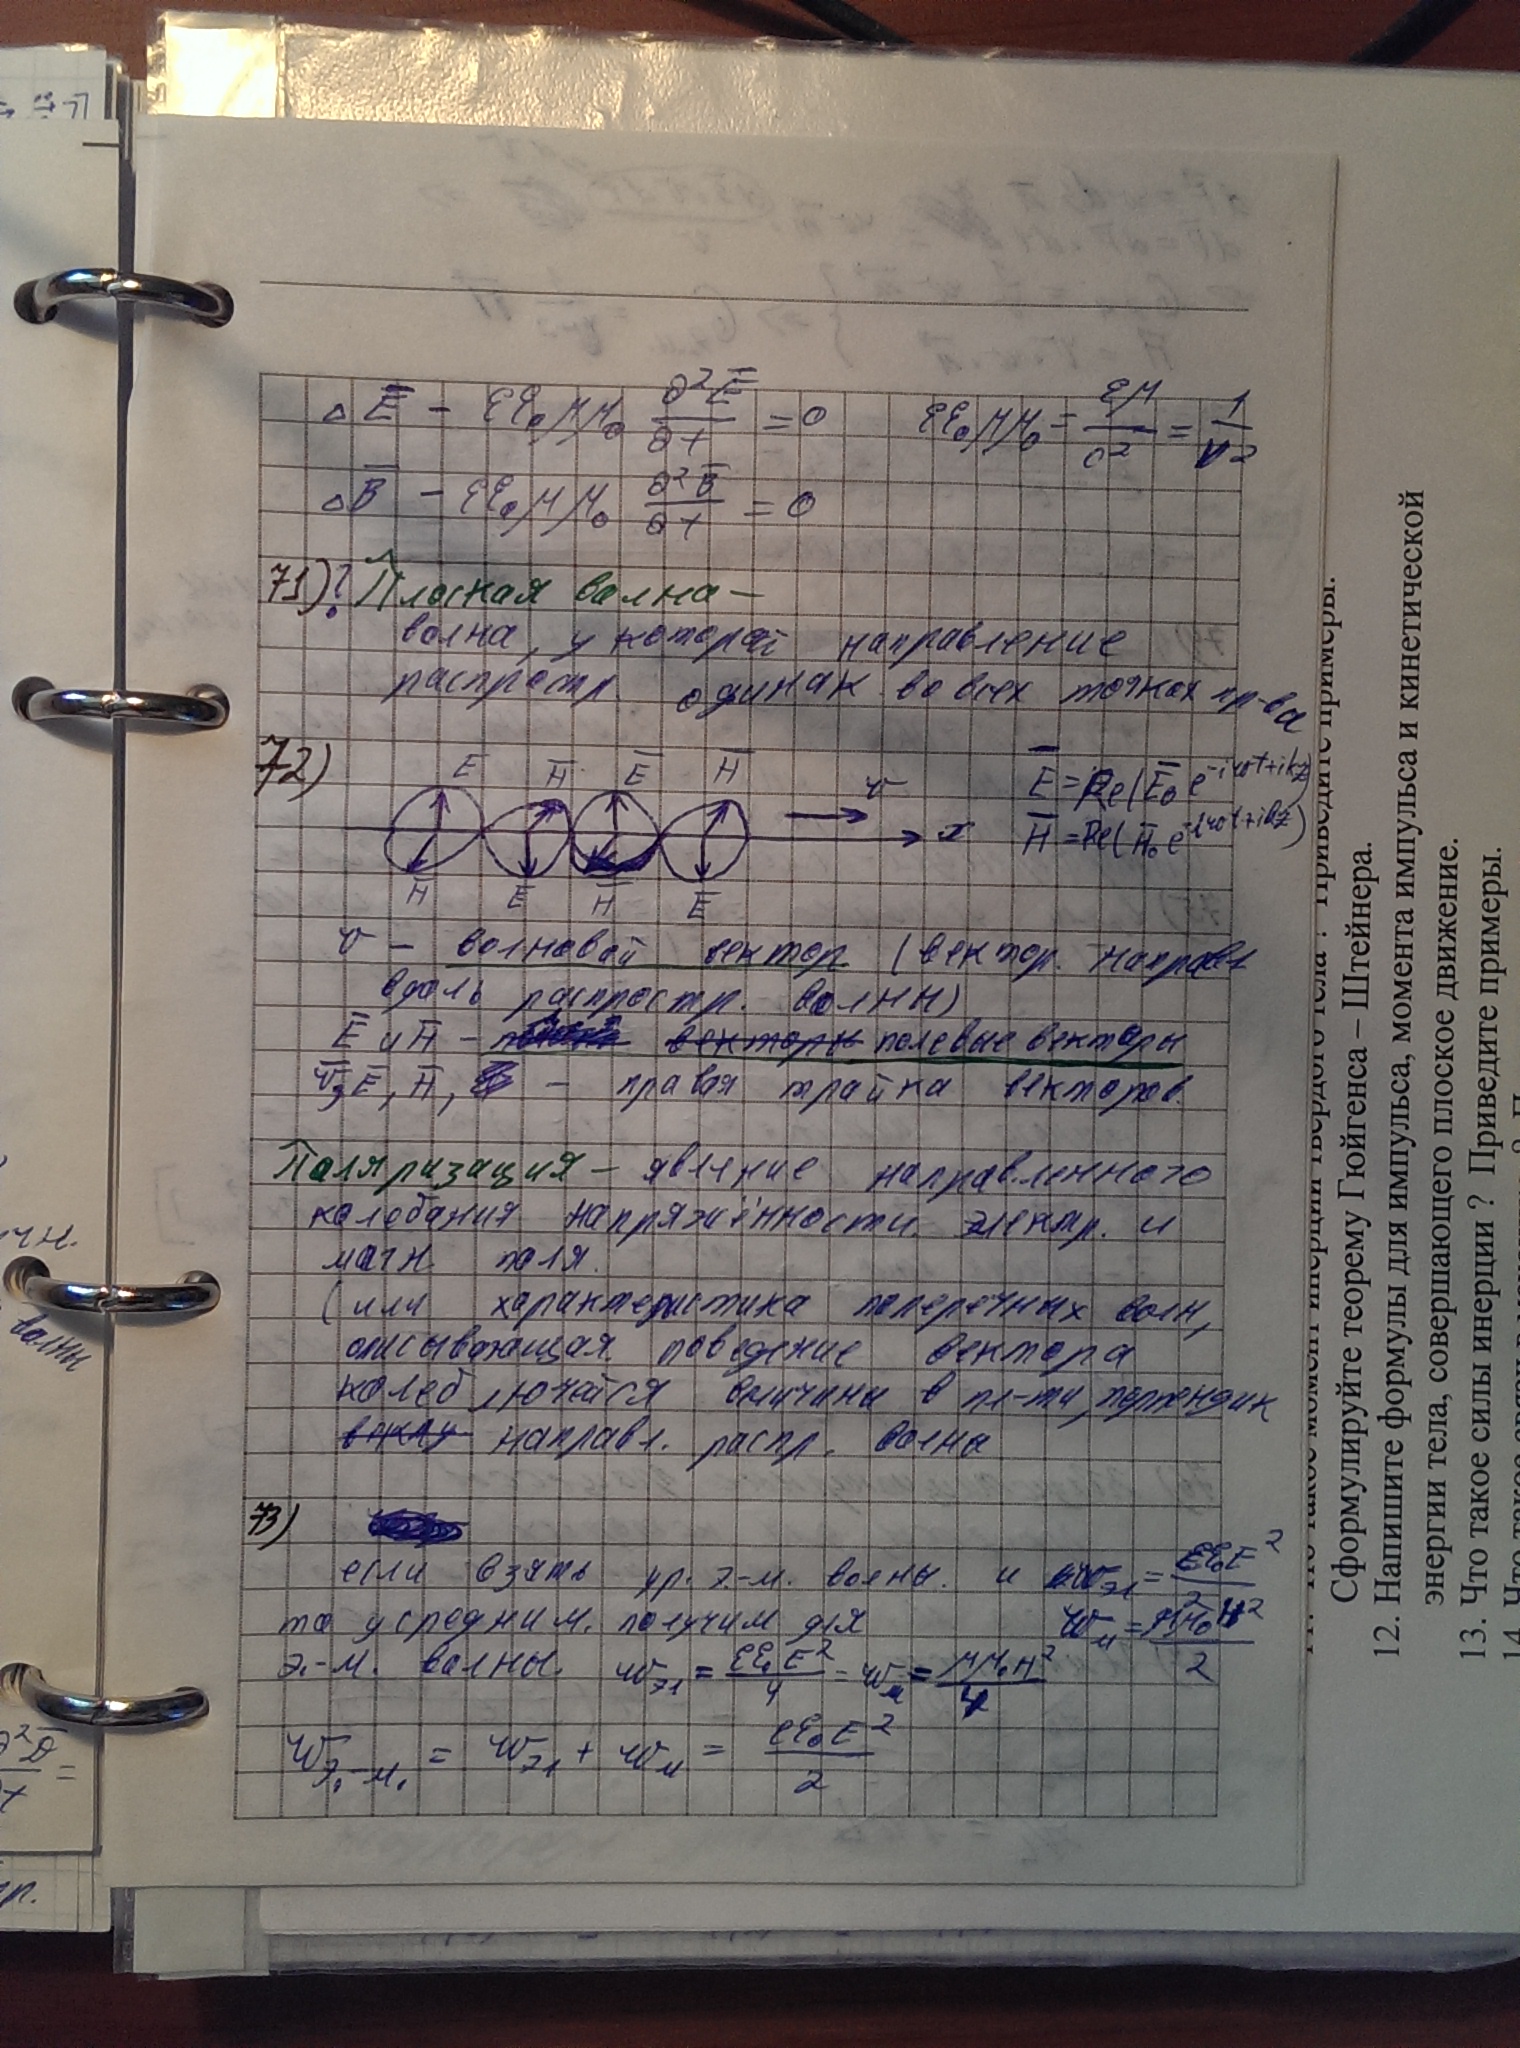 △Ē − εε₀μμ₀ ∂²Ē/∂t = 0 εε₀μμ₀ = εμ/c² = 1/v²
△B̄ − εε₀μμ₀ ∂²B̄/∂t = 0
71)? Плоская волна –
волна, у которой направление
распростр. одинак во всех точках пр-ва
72)
E H̄ Ē H̄ v Ē = Re(Ē₀ e^{-iωt+ikz})
x H̄ = Re(H̄₀ e^{-iωt+ikz})
H̄ Ē H̄ Ē
v – волновой вектор (вектор. направл
вдоль распростр. волны)
Ē и H̄ – векторы полевые векторы
v̄, Ē, H̄, – правая тройка векторов.
Поляризация – явление направленного
колебания напряжённости. электр. и
магн. поля.
(или характеристика поперечных волн,
описывающая поведение вектора
колеблющейся величины в пл-ти, перпендик
направл. распр. волна
73)
если взять ур. э.-м. волны. и wэл = εε₀E²/2
то усредним. получим для wм = μμ₀H²/2
э.-м. волны. wэл = εε₀E²/4 = wм = μμ₀H²/4
wэ.-м. = wэл + wм = εε₀E²/2
чн.
волны
Приведите примеры.
Сформулируйте теорему Гюйгенса – Штейнера.
12. Напишите формулы для импульса, момента импульса и кинетической
энергии тела, совершающего плоское движение.
13. Что такое силы инерции ? Приведите примеры.
14. Что такое